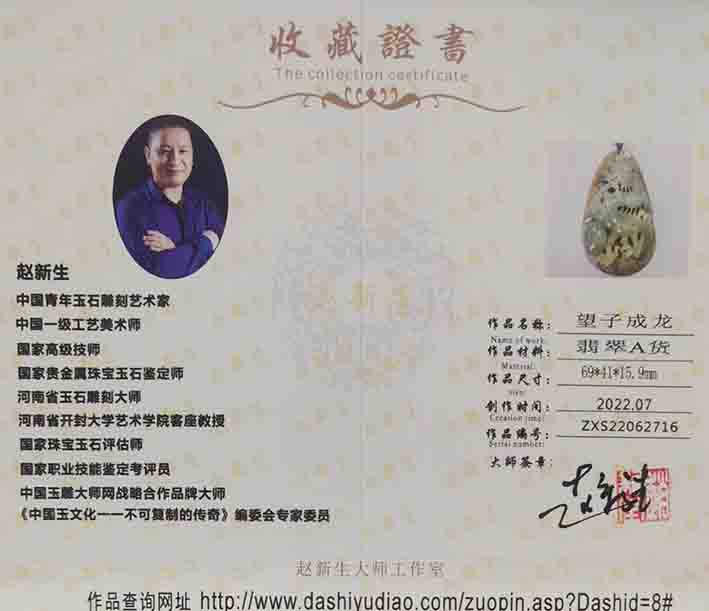 收藏證書
The collection certificate
赵新生
中国青年玉石雕刻艺术家
中国一级工艺美术师
国家高级技师
国家贵金属珠宝玉石鉴定师
河南省玉石雕刻大师
河南省开封大学艺术学院客座教授
国家珠宝玉石评估师
国家职业技能鉴定考评员
中国玉雕大师网战略合作品牌大师
《中国玉文化一一不可复制的传奇》编委会专家委员
赵新生
作品名称: 望子成龙
Name of work:
作品材料: 翡翠A货
Material:
作品尺寸: 69*41*15.9mm
size:
创作时间: 2022.07
Creation time:
作品编号: ZXS22062716
Serial number:
大师签章:
赵新生大师工作室
作品查询网址 http://www.dashiyudiao.com/zuopin.asp?Dashid=8#